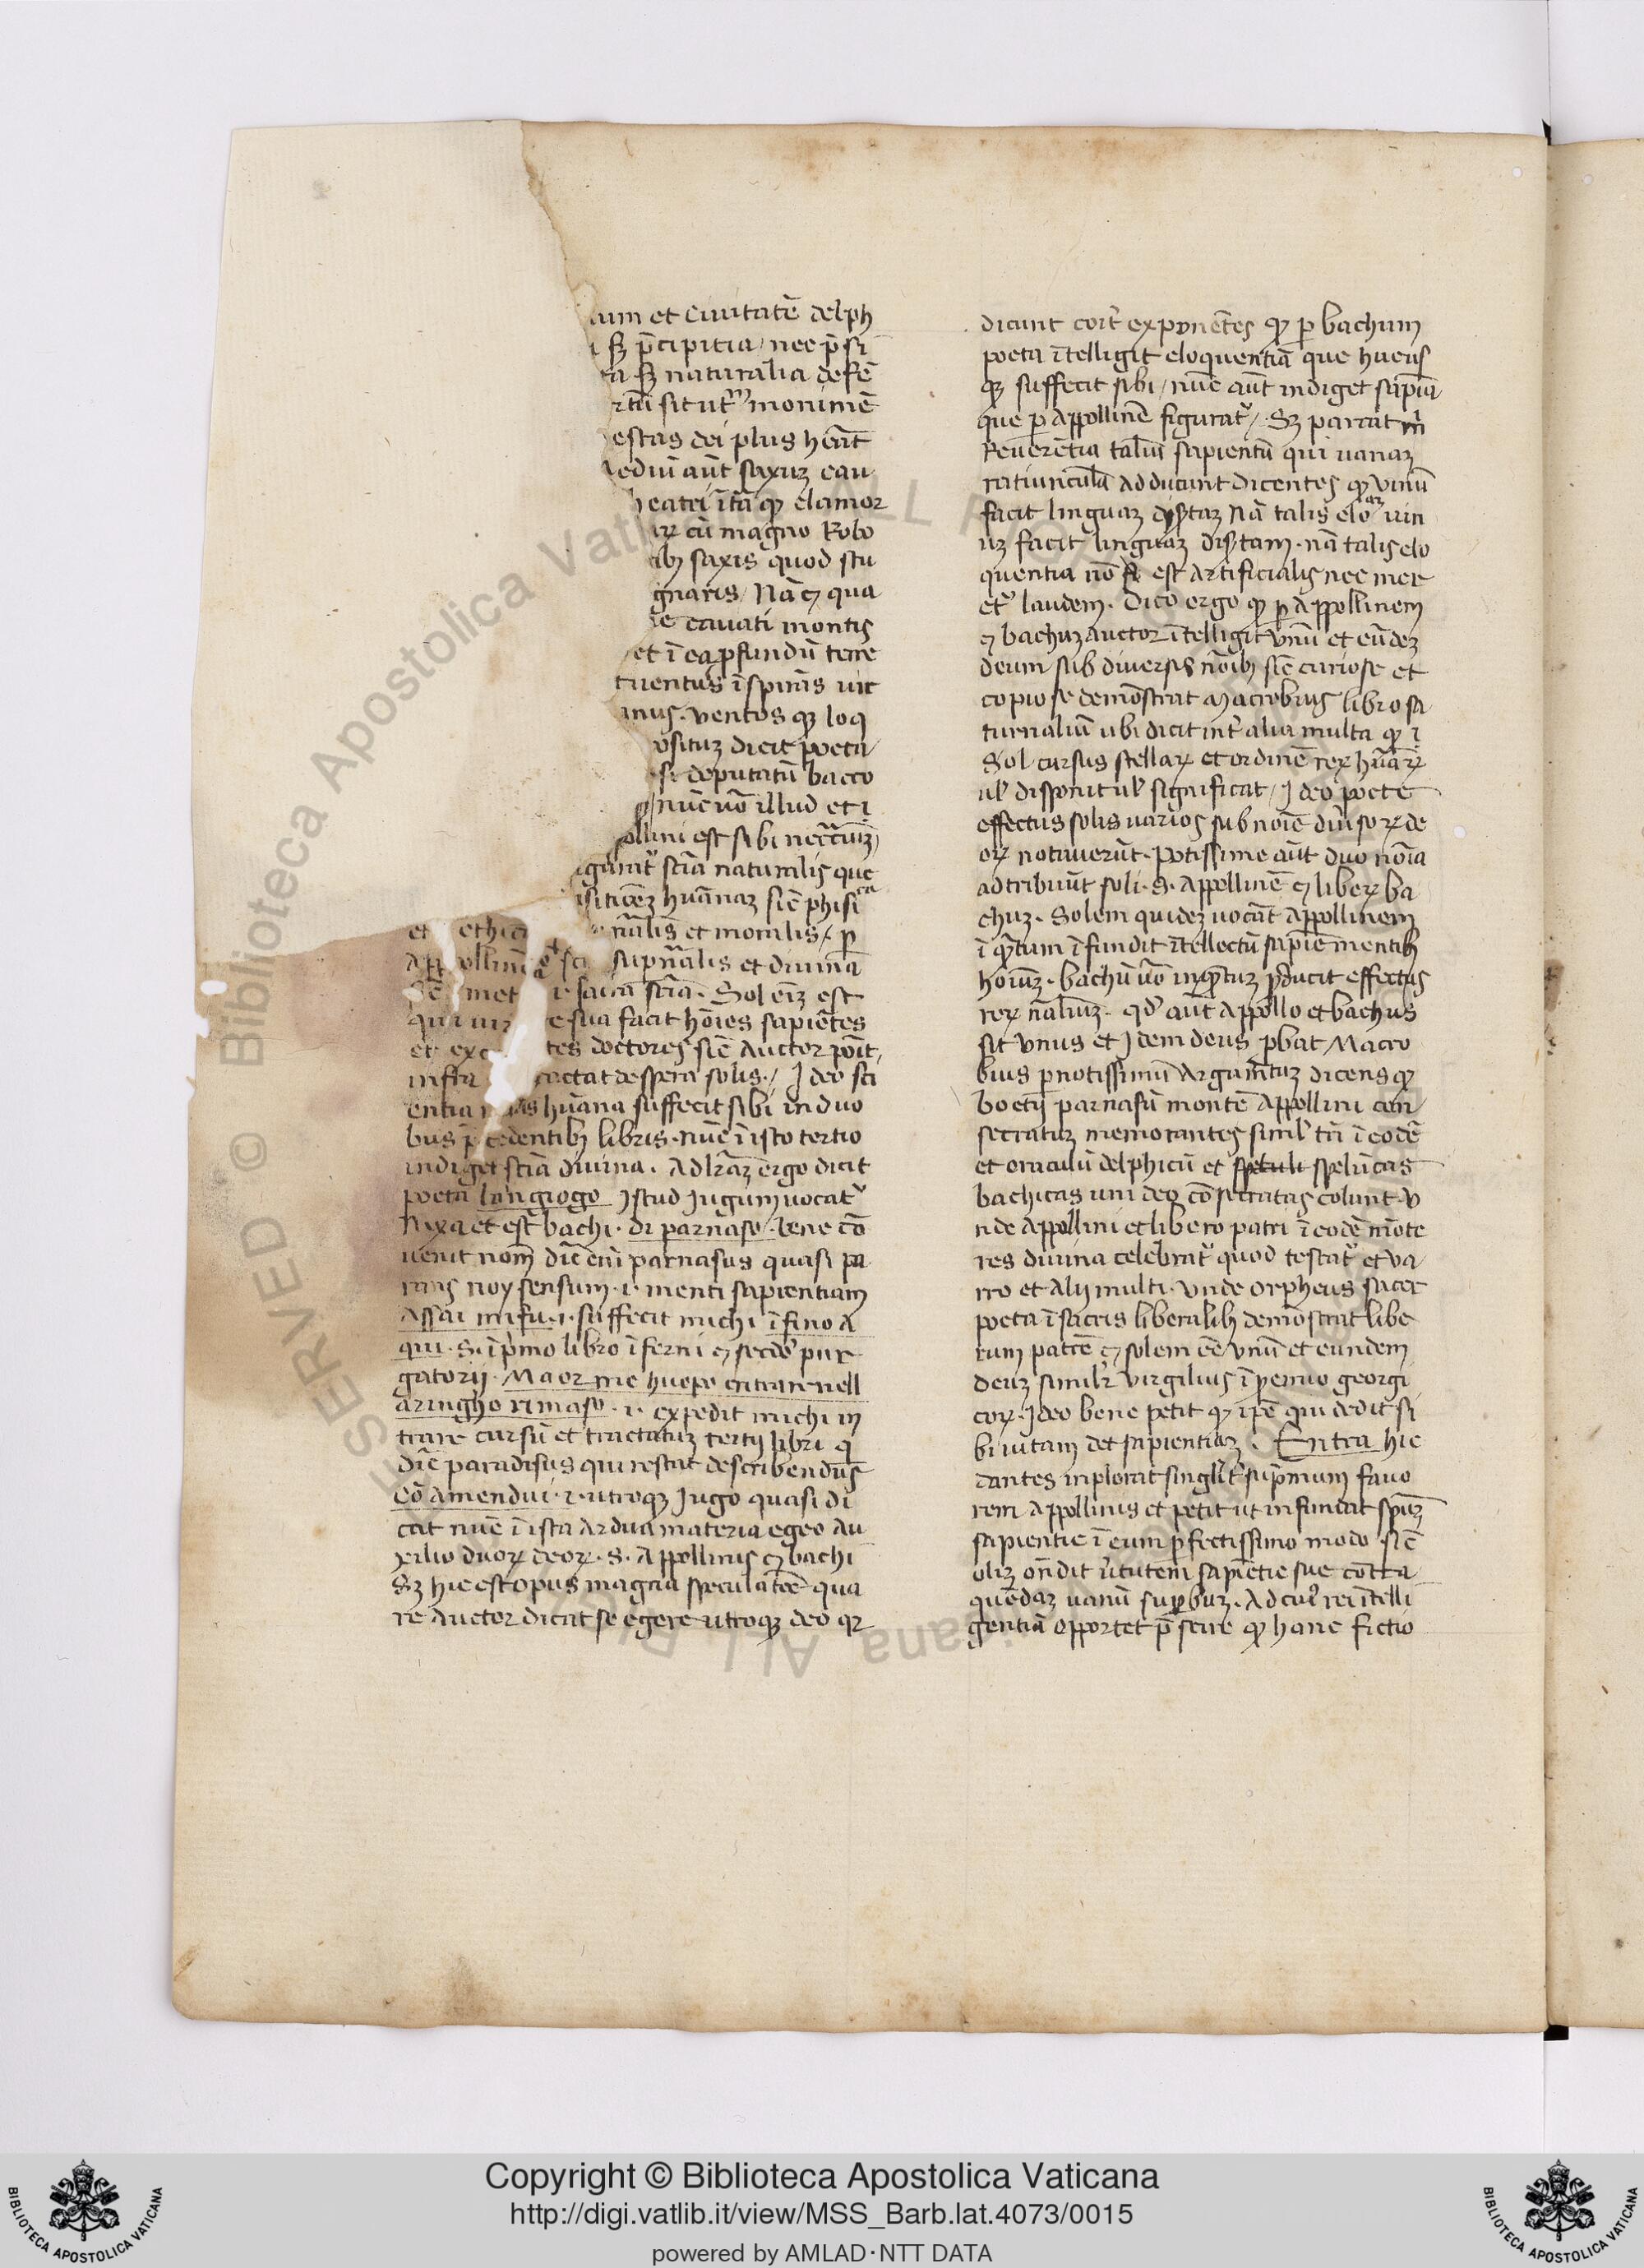 et Ciuitatē delph
sʒ p̄cipitia / nec p̄si
sʒ naturalia defē
sit ut monimē
estas dei plus hēāt
aūt saxuʒ cau
eatri ītā qꝫ clamor
cū magno Robo
saxis quod stu
gnaris / Nā ⁊ qua
cauati montis
et ī ea ꝓfundū terre
uentus īspirās uir
ventos qꝫ loq
ositūʒ dicit poeta
si deputatū bacco
nūc uō illud et i
ollini est sibi neccūiʒ
gurat᷑ scīa naturalis que
huānaʒ sic̄ phisi
et ethica nālis et moralis / ꝑ
App ollinē sci supn̄alis et diuina
sic̄ met sacra scīa . Sol eīʒ est
qui e sua facit hōies sapiētes
et exc tes doctores sic̄ Auctor pōit
infra tractat de spera solis / Ideo sci
entia huāna suffecit sibi in duo
bus p̄cedentibꝫ libris . nūc ī isto tertio
indiget scīa diuina . Ad lr̄aʒ ergo dicit
poeta lungiogo Istud Iugum uocat᷑
Nixa et est bachi . di parnaso . bene cō
uenit nom̄ dic̄ enī parnasus quasi pa
rans noy sensum . i . menti sapientiam
Assai mifu . i . suffecit michi ī fino A
qui . S . ī p̄mo libro īferni ⁊ secdo pur
gatorij . Ma or me huopo entrare nell
aringho rimaso . i . expedit michi in
trare cursū et tractatuʒ tertij libri q̄
dic̄ paradisus qui restat describendus
Cō amendui . i . utroqꝫ Iugo quasi di
cat nūc ī ista ardua materia egeo Au
xilio duoꝝ deoꝝ . S . Appollinis ⁊ bachi
Sʒ hic est opus magna speculatōe qua
re Auctor dicat se egere utroqꝫ deo qꝛ
dicunt cort᷑ exponētes qꝫ ꝑ bachum
poeta ītelligit eloquentiā que hucusꝫ
qꝫ suffecit sibi / nūc aūt indiget sapiā
que ꝑ Appollinē figurat᷑ / Sʒ parcat m̄
Reuerētia taliū sapientū qui uanaʒ
ratiunculā adducunt dicentes qꝫ vinū
facit linguaʒ dis̄taʒ Nā talis elo uin
uʒ facit linguaʒ dis̄tam . nā talis elo
quentia nō est artificialis nec mer
et᷑ laudem . Dico ergo qꝫ ꝑ Appollinem
⁊ bachuʒ auctor ītelligit vnū et eūdeʒ
deum sub diuersis nōibꝫ sic̄ curiose et
copiose demōstrat Macrobius libro sa
turnaliū ubi dicit int᷑ alia multa qꝫ i
Sol cursus stellaꝝ et ordinē reꝝ huāꝝ
ul᷑ disponit ul᷑ significat / Ideo poete
effectus solis uarios sub noīe diuīsoꝝ de
oꝝ notauerūt . Potissime aūt duo noīa
adtribuūt soli . S . Appollinē ⁊ liberꝝ ba
chuʒ . Solem quideʒ uocāt Appollinem
ī qʳtam īfundit ītellectū sapiē mentibꝫ
hoīuʒ . bachū uō inqʳtuʒ ꝓducit effectus
reꝝ nāliuʒ . qd᷑ aūt Appollo et bachus
sit vnus et Idem deus ꝓbat Macro
bius ꝑ notissimū Argumētuʒ dicens qꝫ
boetij parnasū montē Appollini con
secratuʒ memorantes simul tn̄ ī eodē
et oraculū delphicū et speluli spelūcas
bachicas uni deo cōsecratas colunt . v
nde Appollini et libero patri ī eodē mōte
res diuina celebrat᷑ quod testat᷑ et va
rro et Alij multi . vnde orpheus sacer
poeta ī sacris liberalibꝫ demōstrat libe
rum patrē ⁊ solem eē vnū et eundem
deuʒ simil᷑r virgilius ī ꝓemio georgi
coꝝ . Ideo bene petit qꝫ ipē qui dedit si
bi uitam det sapientiaʒ . Entra hic
dantes inplorat singlr̄t᷑ supmum fauo
rem Appollinis et petit ut infundat spūʒ
sapientie ī eum ꝑfectissimo modo . sic̄
oliʒ on̄dit ututem sapiētie sue contra
quēdaʒ uanū supbuʒ . Ad cuiꝰ rei ītelli
gentiā opportet p̄ scire qꝫ hanc fictio
Copyright © Biblioteca Apostolica Vaticana
http://digi.vatlib.it/view/MSS_Barb.lat.4073/0015
powered by AMLAD·NTT DATA
BIBLIOTECA APOSTOLICA VATICANA
BIBLIOTECA APOSTOLICA VATICANA